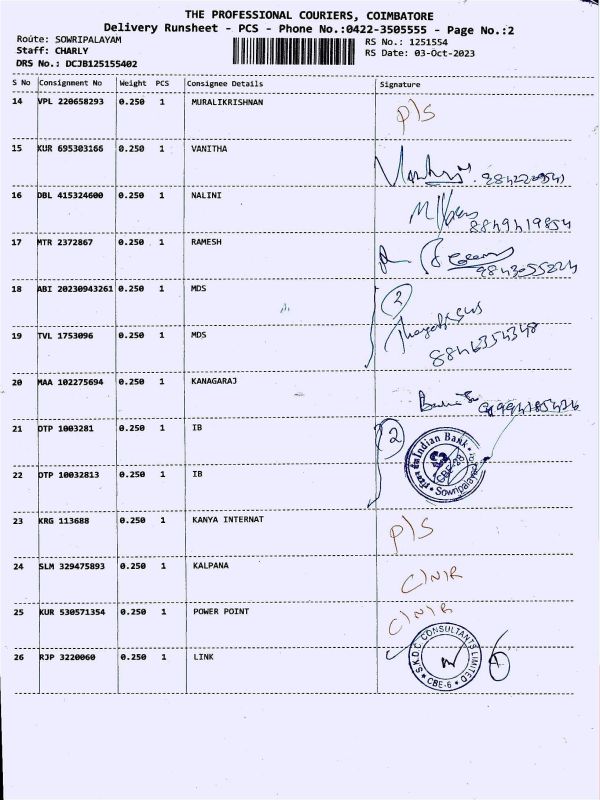 THE PROFESSIONAL COURIERS, COIMBATORE
Delivery Runsheet - PCS - Phone No.:0422-3505555 - Page No.:2
Route: SOWRIPALAYAM
RS No.: 1251554
Staff: CHARLY
RS Date: 03-Oct-2023
DRS No.: DCJB125155402
S No Consignment No Weight PCS Consignee Details Signature
14 VPL 220658293 0.250 1 MURALIKRISHNAN P\S
15 KUR 695303166 0.250 1 VANITHA
16 DBL 415324600 0.250 1 NALINI 8849419854
17 MTR 2372867 0.250 1 RAMESH 9843055224
18 ABI 20230943261 0.250 1 MDS 2
19 TVL 1753096 0.250 1 MDS 8846354348
20 MAA 102275694 0.250 1 KANAGARAJ
21 DTP 1003281 0.250 1 IB 2 Indian Bank
22 DTP 10032813 0.250 1 IB Sowripalayam
23 KRG 113688 0.250 1 KANYA INTERNAT P\S
24 SLM 329475893 0.250 1 KALPANA C\N\R
25 KUR 530571354 0.250 1 POWER POINT C\N\R
26 RJP 3220060 0.250 1 LINK S.K.D.C CONSULTANTS LIMITED CBE-6